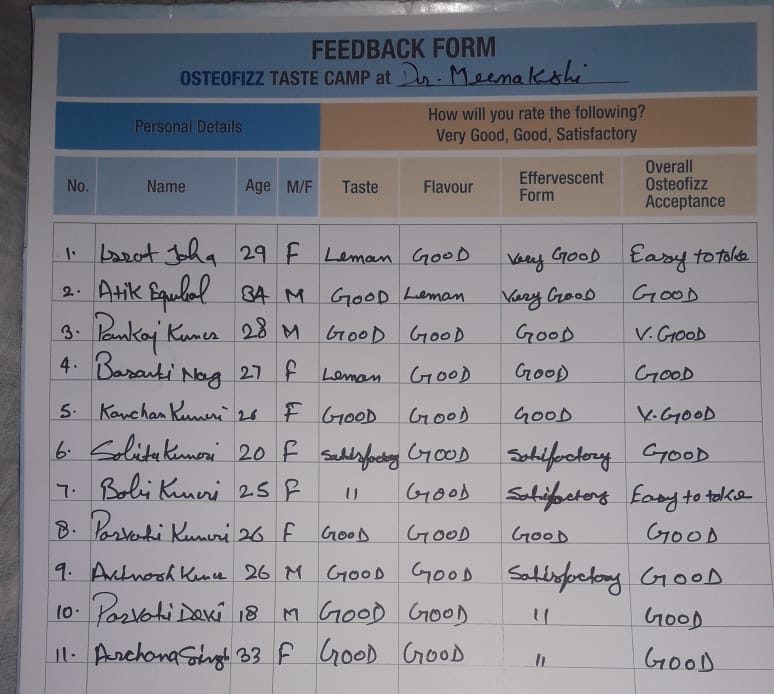 FEEDBACK FORM
OSTEOFIZZ TASTE CAMP at Dr. Meenakshi
Personal Details
How will you rate the following?
Very Good, Good, Satisfactory
No. Name Age M/F Taste Flavour Effervescent Form Overall Osteofizz Acceptance
1. 29 F Leman GOOD Very GOOD Easy to take
2. Atik Equbal 34 M GOOD Leman Very Good GOOD
3. Pankaj Kumar 28 M GOOD GOOD GOOD V. GOOD
4. Basanti Nag 27 F Leman GOOD GOOD GOOD
5. Kanchan Kumari 26 F GOOD GOOD GOOD V. GOOD
6. Kumari 20 F Satisfactory GOOD Satisfactory GOOD
7. Kumari 25 F " GOOD Satisfactory Easy to take
8. Parvati Kumari 26 F GOOD GOOD GOOD GOOD
9. 26 M GOOD GOOD Satisfactory GOOD
10. Parvati Devi 18 M GOOD GOOD " GOOD
11. Archana Singh 33 F GOOD GOOD " GOOD